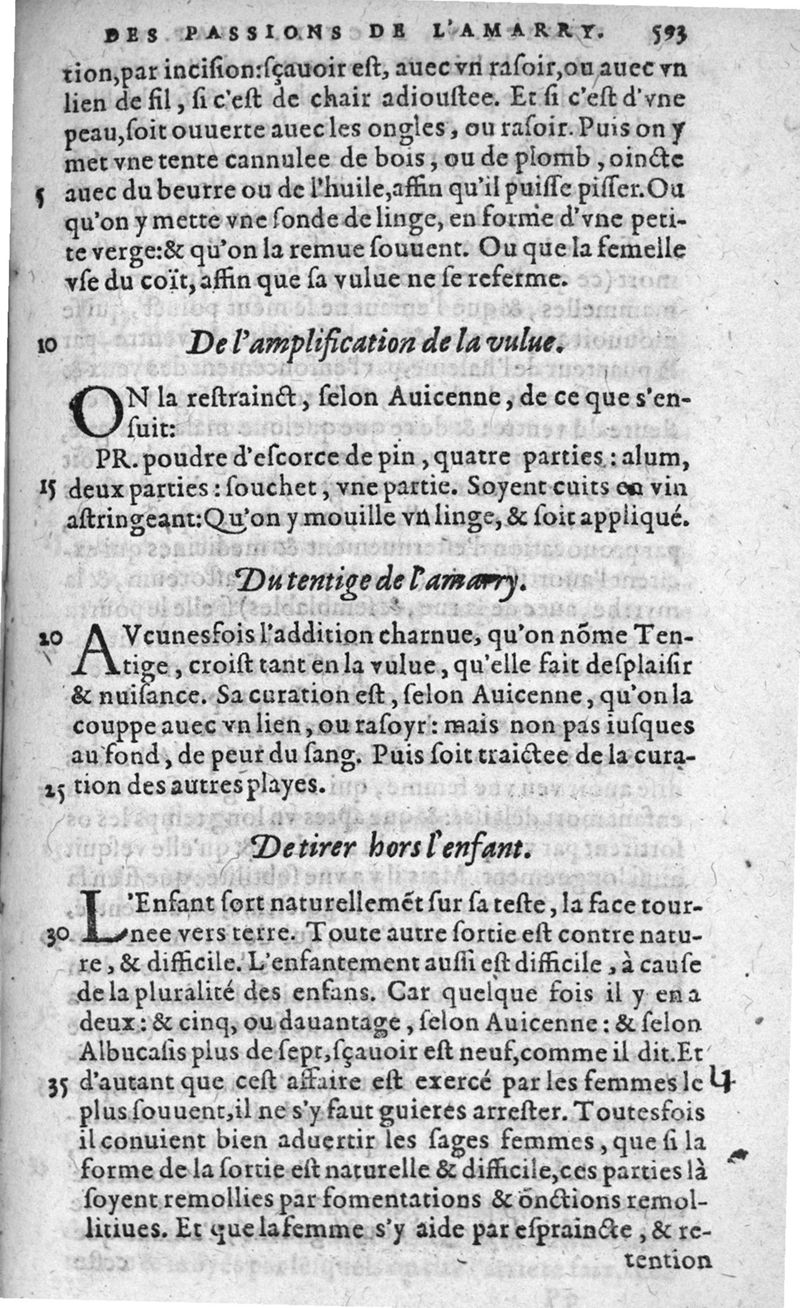 DES PASSIONS DE L'AMARRY. 593
tion,par incision:sçauoir est, auec vn rasoir,ou auec vn
lien de fil, si c'est de chair adioustee. Et si c'est d'vne
peau,soit ouuerte auec les ongles, ou rasoir. Puis on y
met vne tente cannulee de bois, ou de plomb, oincte
5 auec du beurre ou de l'huile,affin qu'il puisse pisser. Ou
qu'on y mette vne sonde de linge, en forme d'vne peti-
te verge:& qu'on la remue souuent. Ou que la femelle
vse du coït, affin que sa vulue ne se referme.
10 De l'amplification de la vulue.
ON la restrainct, selon Auicenne, de ce que s'en-
suit:
PR. poudre d'escorce de pin, quatre parties: alum,
15 deux parties: souchet, vne partie. Soyent cuits en vin
astringeant:Qu'on y mouille vn linge, & soit appliqué.
Du tentige de l'amarry.
20 AVcunesfois l'addition charnue, qu'on nõme Ten-
tige, croist tant en la vulue, qu'elle fait desplaisir
& nuisance. Sa curation est, selon Auicenne, qu'on la
couppe auec vn lien, ou rasoyr: mais non pas iusques
au fond, de peur du sang. Puis soit traictee de la cura-
25 tion des autres playes.
De tirer hors l'enfant.
L'Enfant sort naturellemẽt sur sa teste, la face tour-
30 nee vers terre. Toute autre sortie est contre natu-
re, & difficile. L'enfantement aussi est difficile, à cause
de la pluralité des enfans. Car quelque fois il y en a
deux: & cinq, ou dauantage, selon Auicenne: & selon
Albucasis plus de sept,sçauoir est neuf,comme il dit. Et
35 d'autant que cest affaire est exercé par les femmes le 4
plus souuent,il ne s'y faut guieres arrester. Toutesfois
il conuient bien aduertir les sages femmes, que si la
forme de la sortie est naturelle & difficile,ces parties là
soyent remollies par fomentations & õnctions remol-
litiues. Et que la femme s'y aide par espraincte, & re-
tention